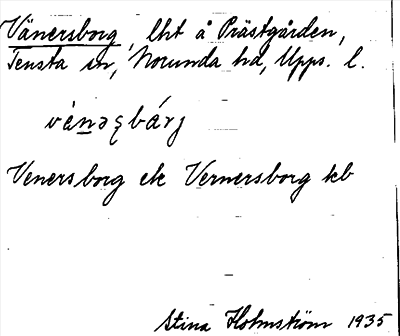 Vänersborg, lht å Prästgården,
Tensta sn, Norunda hd, Upps. l.
vä̀nəʂbárj
Venersborg ek Vernersborg kb
Stina Holmström 1935